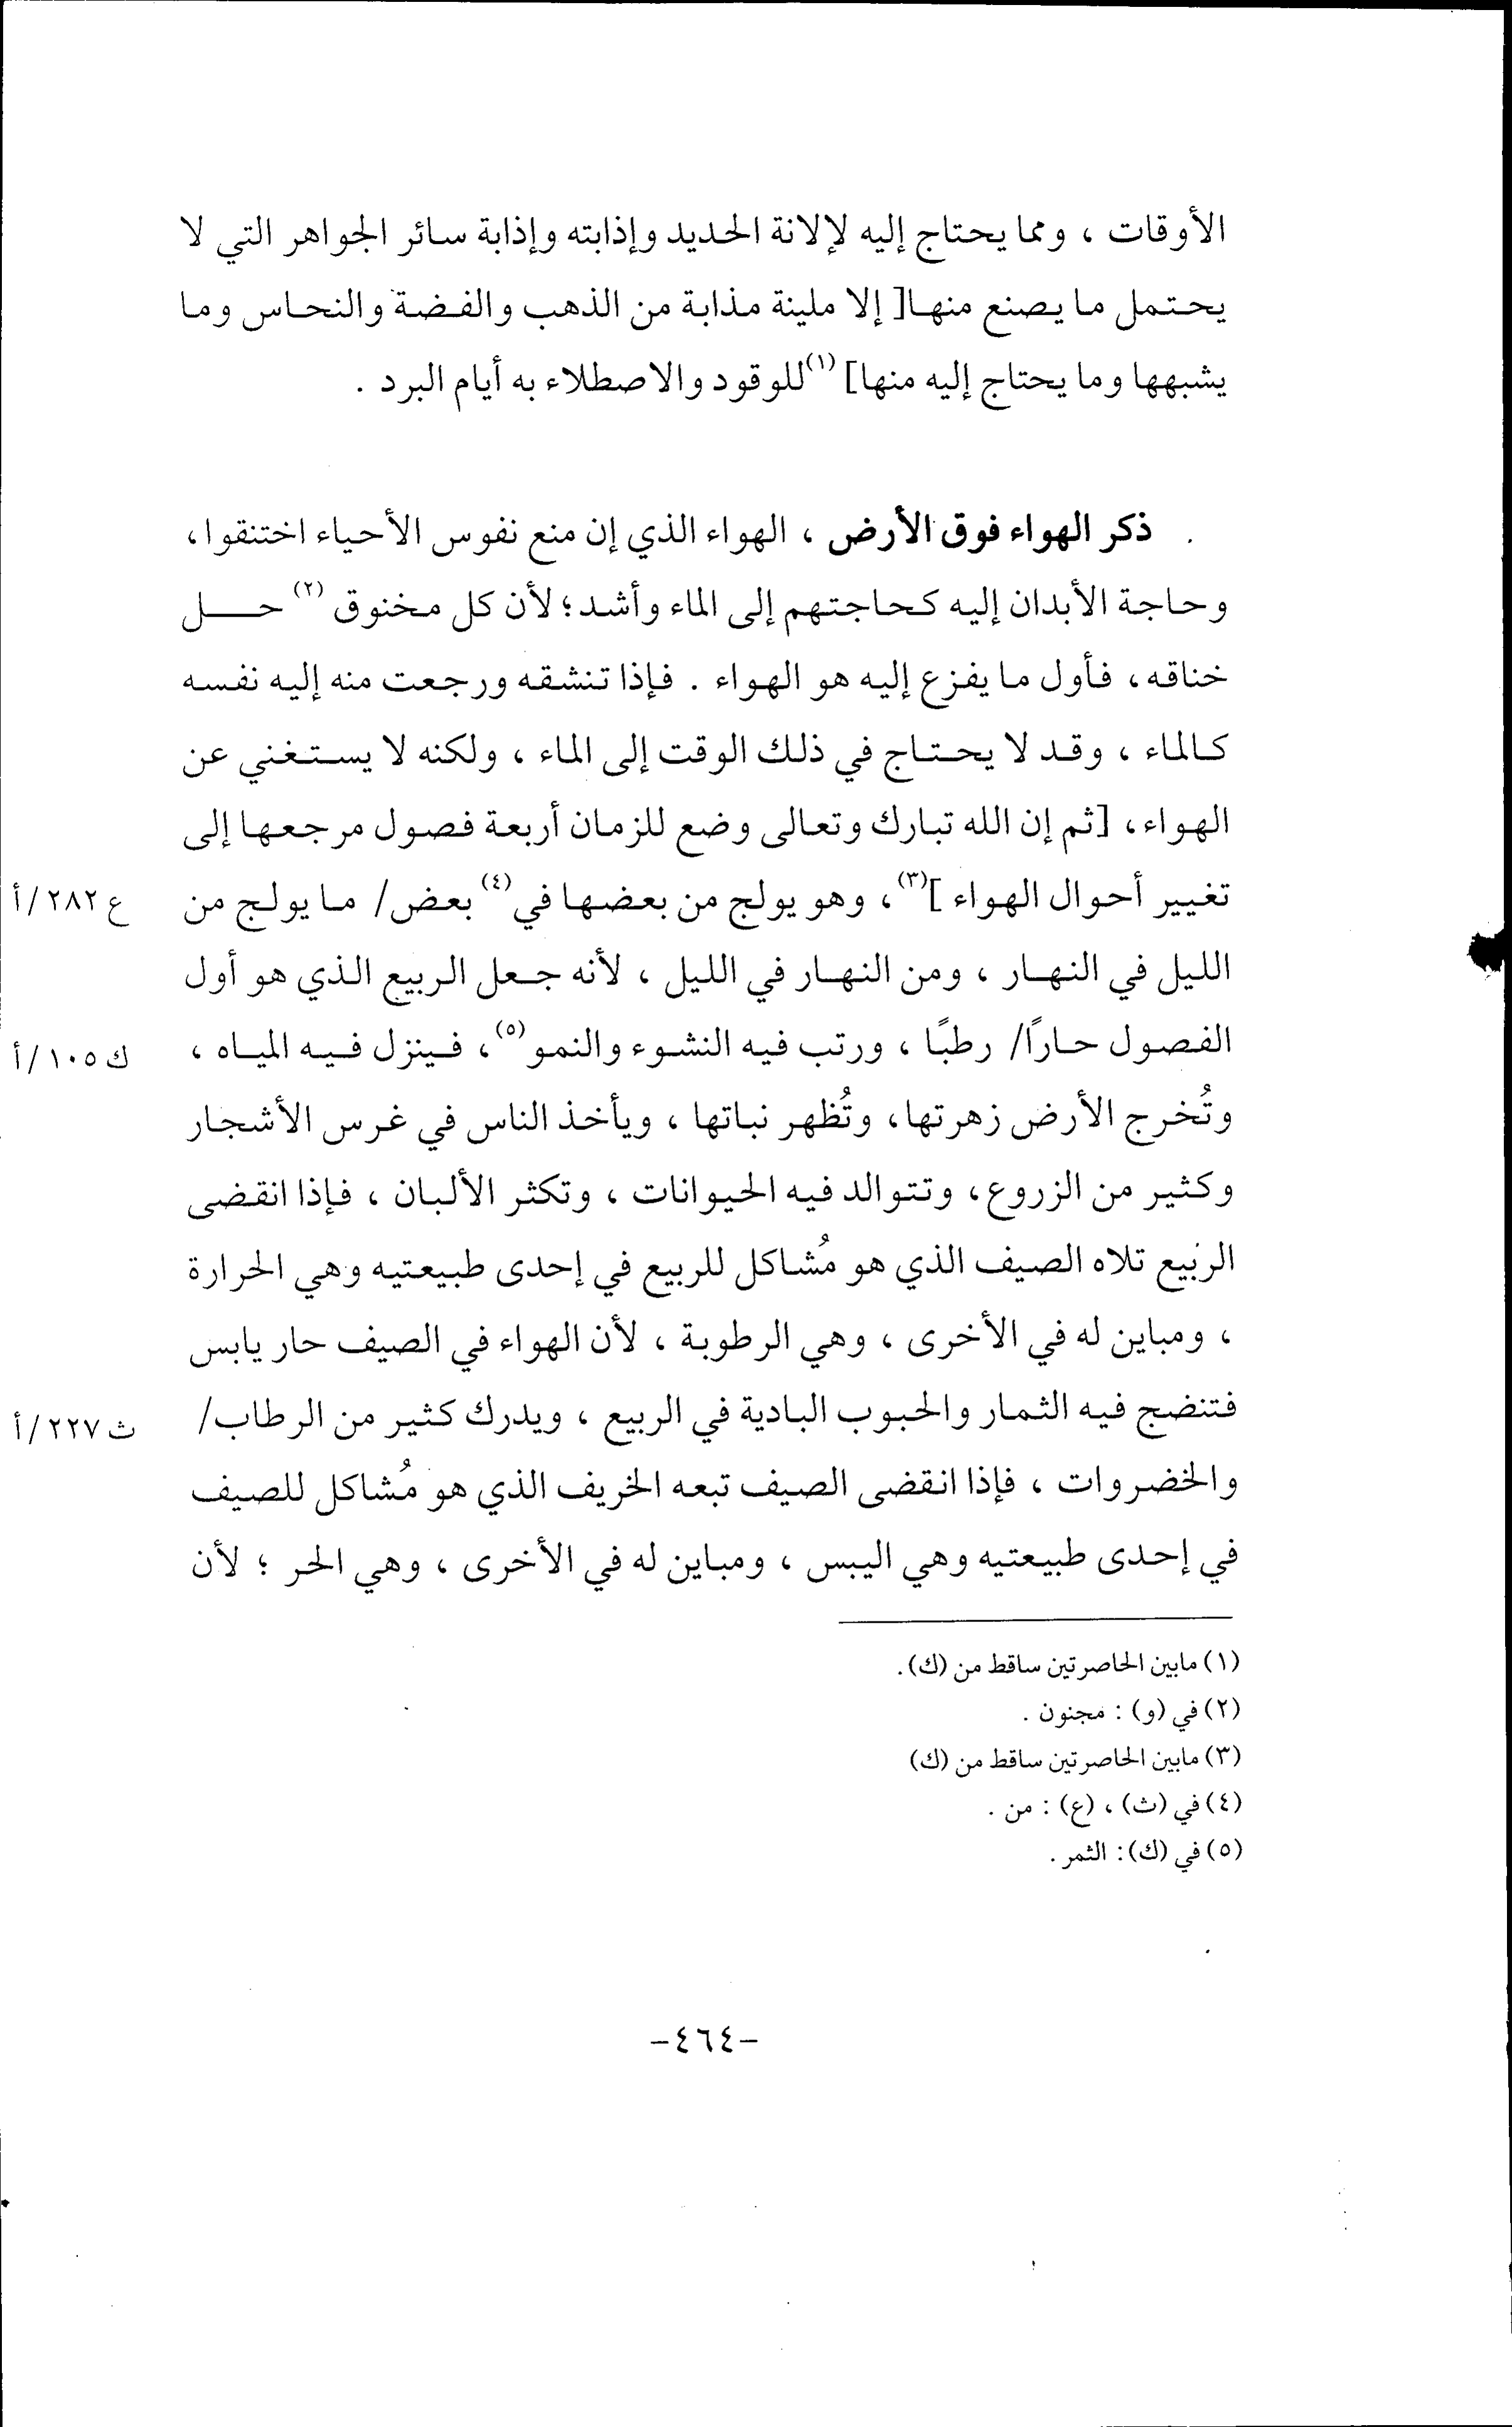 الأوقات ، ومما يحتاج إليه لإلانة الحديد وإذابته وإذابة سائر الجواهر التي لا
يحتمل ما يصنع منها[ إلا ملينة مذابة من الذهب والفضة والنحاس وما
يشبهها وما يحتاج إليه منها] (١) للوقود والاصطلاء به أيام البرد .
ذكر الهواء فوق الأرض ، الهواء الذي إن منع نفوس الأحياء اختنقوا ،
وحاجة الأبدان إليه كحاجتهم إلى الماء وأشد؛ لأن كل مخنوق (٢) حل
خناقه ، فأول ما يفزع إليه هو الهواء . فإذا تنشقه ورجعت منه إليه نفسه
كالماء ، وقد لا يحتاج في ذلك الوقت إلى الماء ، ولكنه لا يستغني عن
الهواء ، [ثم إن الله تبارك وتعالى وضع للزمان أربعة فصول مرجعها إلى
تغيير أحوال الهواء ] (٣) ، وهو يولج من بعضها في (٤) بعض/ ما يولج من
ع ٢٨٢ /أ
الليل في النهار ، ومن النهار في الليل ، لأنه جعل الربيع الذي هو أول
الفصول حارًا/ رطبًا ، ورتب فيه النشوء والنمو (٥) ، فينزل فيه المياه ،
ك ١٠٥ /أ
وتُخرج الأرض زهرتها ، وتُظهر نباتها ، ويأخذ الناس في غرس الأشجار
وكثير من الزروع ، وتتوالد فيه الحيوانات ، وتكثر الألبان ، فإذا انقضى
الربيع تلاه الصيف الذي هو مُشاكل للربيع في إحدى طبيعتيه وهي الحرارة
، ومباين له في الأخرى ، وهي الرطوبة ، لأن الهواء في الصيف حار يابس
فتنضج فيه الثمار والحبوب البادية في الربيع ، ويدرك كثير من الرطاب/
ث ٢٢٧ /أ
والخضروات ، فإذا انقضى الصيف تبعه الخريف الذي هو مُشاكل للصيف
في إحدى طبيعتيه وهي اليبس ، ومباين له في الأخرى ، وهي الحر ؛ لأن
(١) مابين الحاصرتين ساقط من (ك).
(٢) في (و) : مجنون .
(٣) مابين الحاصرتين ساقط من (ك)
(٤) في (ث) ، (ع) : من .
(٥) في (ك): الثمر .
-٤٦٤-